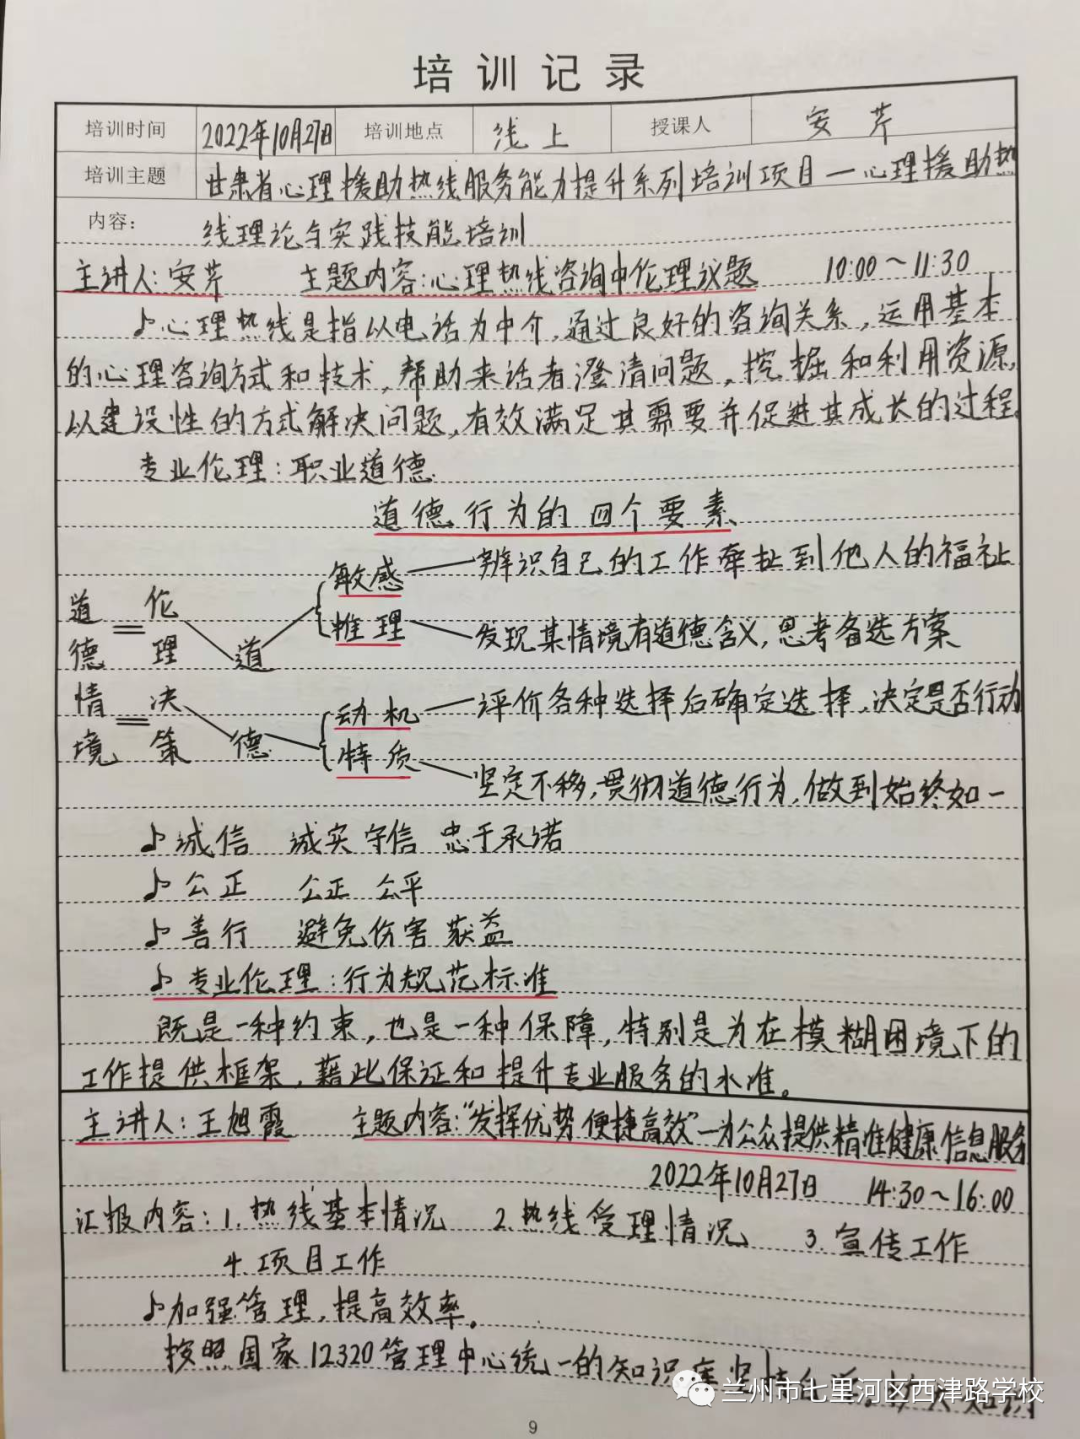 培训记录
培训时间 2022年10月27日 培训地点 线上 授课人 安芹
培训主题 甘肃省心理援助热线服务能力提升系列培训项目—心理援助热
内容： 线理论与实践技能培训
主讲人：安芹 主题内容：心理热线咨询中伦理议题 10:00～11:30
♪心理热线是指以电话为中介，通过良好的咨询关系，运用基本
的心理咨询方式和技术，帮助来话者澄清问题，挖掘和利用资源，
以建设性的方式解决问题，有效满足其需要并促进其成长的过程。
专业伦理：职业道德
道德行为的四个要素
敏感 — 辨识自己的工作牵扯到他人的福祉
道德 = 伦理 道
推理 — 发现某情境有道德含义，思考备选方案
情境 = 决策 德
动机 — 评价各种选择后确定选择，决定是否行动
特质 — 坚定不移，贯彻道德行为，做到始终如一
♪诚信 诚实守信 忠于承诺
♪公正 公正 公平
♪善行 避免伤害 获益
♪专业伦理：行为规范标准
既是一种约束，也是一种保障，特别是为在模糊困境下的
工作提供框架，藉此保证和提升专业服务的水准。
主讲人：王旭霞 主题内容：“发挥优势 便捷高效”—为公众提供精准健康信息服务
2022年10月27日 14:30～16:00
汇报内容：1.热线基本情况 2.热线受理情况 3.宣传工作
4.项目工作
♪加强管理，提高效率。
按照国家12320管理中心统一的知识库
兰州市七里河区西津路学校
9